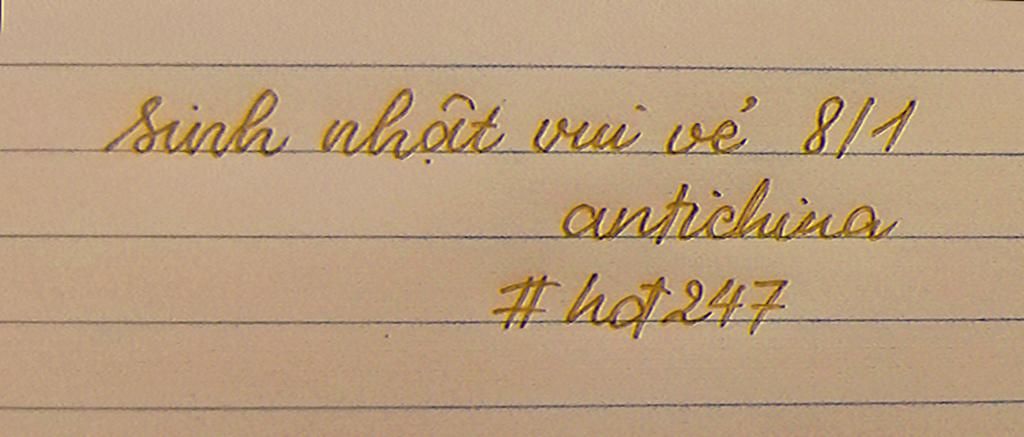 sinh nhật vui vẻ 8/1
antichina
#hot247